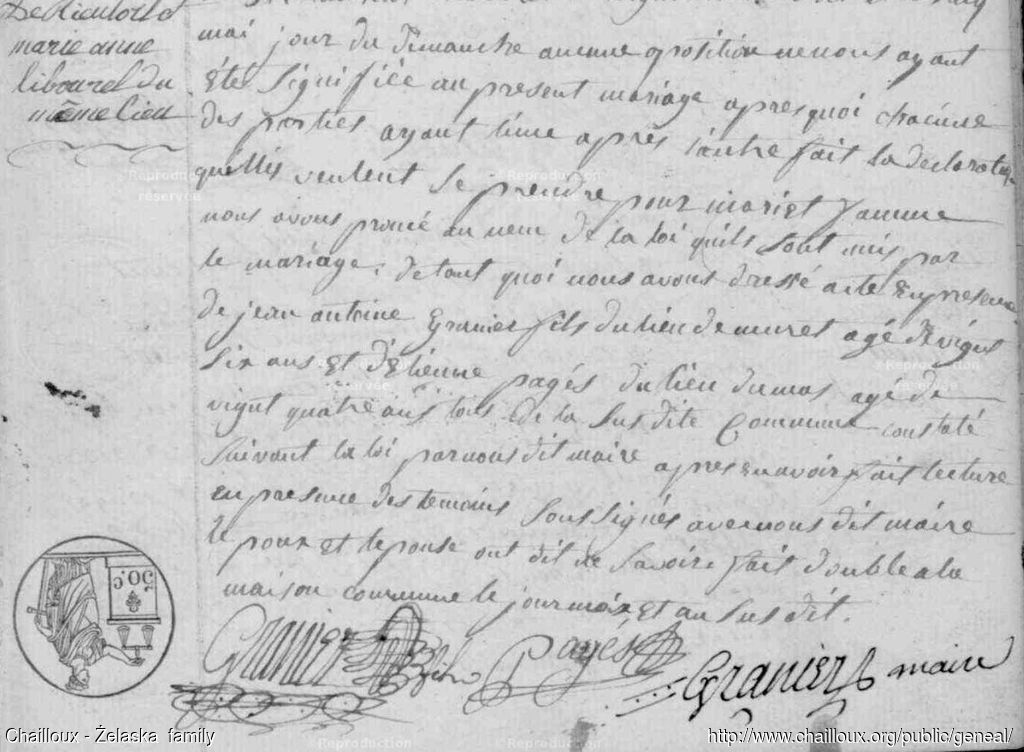 marie anne
libourel du
même lieu
mai jour du dimanche aucune oposition ne nous ayant
Été signifiée au present mariage apres quoi chacune
des parties ayant l'une après l'autre fait la declaration
quelles veulent se prendre pour mari et famme
nous avons au nom de la loi quils sont unis par
le mariage, de tout quoi nous avons dressé acte En presence
de jean antoine Granier fils du lieu de muret agé de vignt
Six ans Et D'Etienne pagés du lieu du mas agé de
vignt quatre ans tous de la Sus dite Commune constaté
Suivant la loi par nous dit maire apres en avoir fait lecture
En presence des temoins Soussignés avec nous dit maire
l'epoux Et l'epouse ont dit ne Savoir, fait double a la
maison commune le jour mois Et an Sus dit.
Granier Pagés Granier maire
50.c
Reproduction réservée
Chailloux - Żelaska family
http://www.chailloux.org/public/geneal/